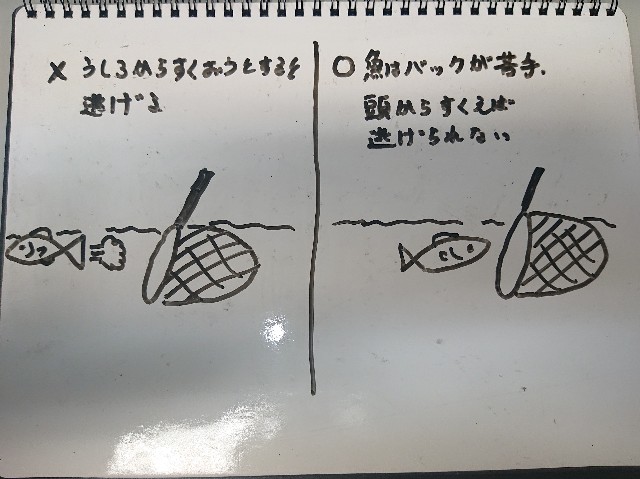 × うしろからすくおうとすると
逃げる
○ 魚はバックが苦手、
頭からすくえば
逃げられない